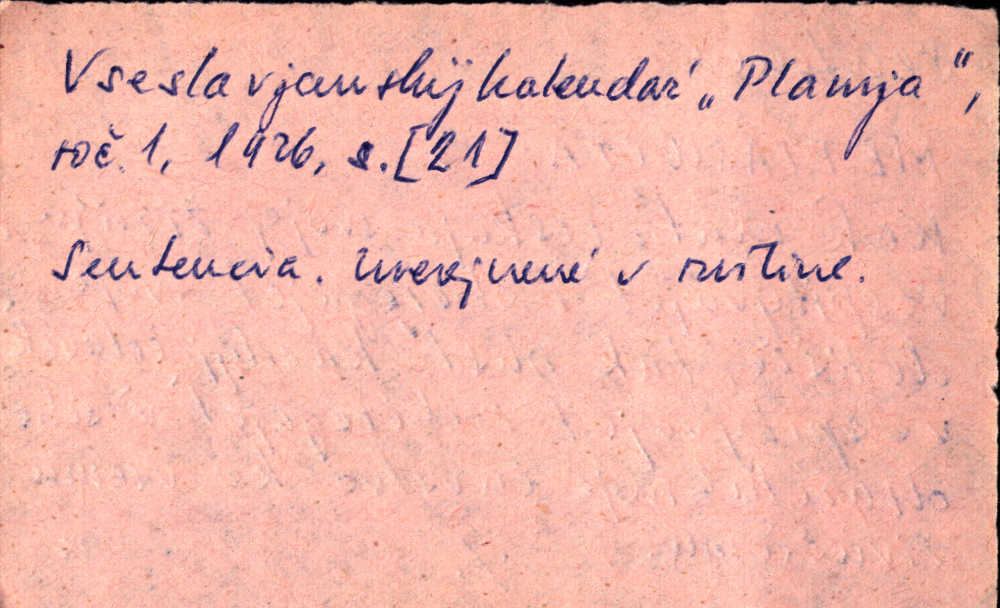 Vseslavjanskij kalendař „Plamja",
roč. 1, 1926, s. [21]
Sentencia. Uverejnené v ruštine.